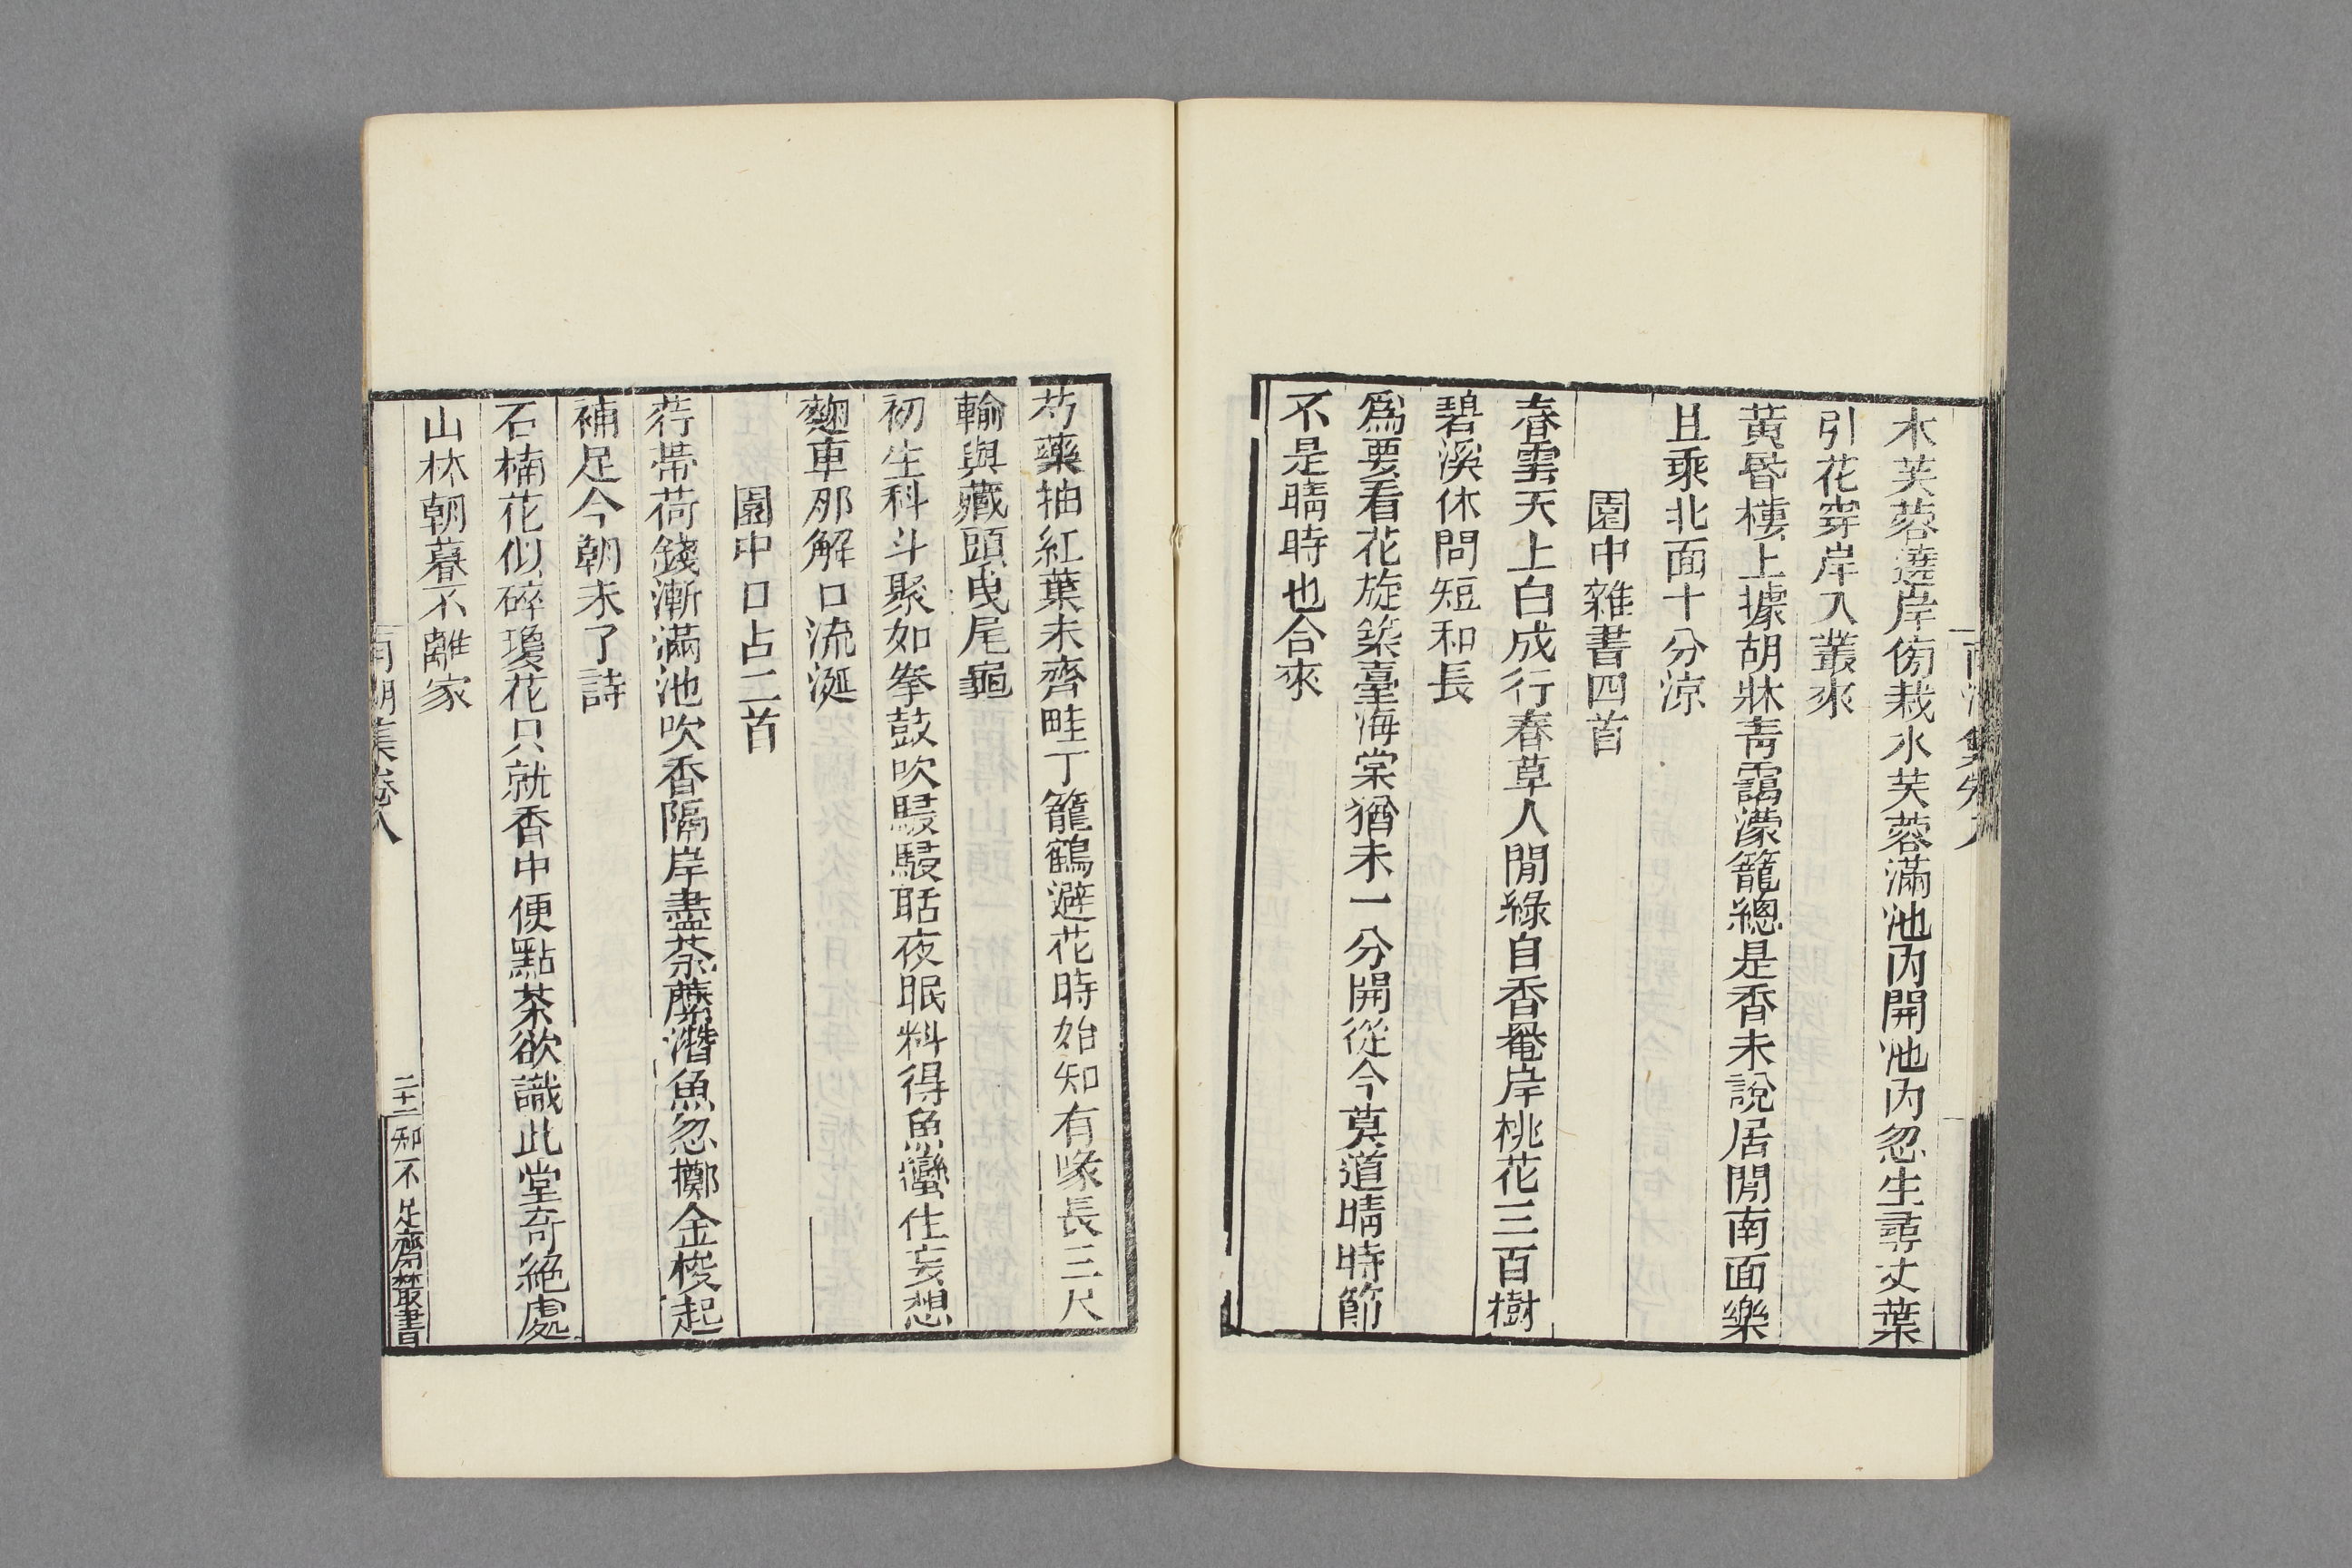 木芙蓉遶岸傍栽水芙蓉滿池內開池內忽生尋丈葉
引花穿岸入叢來
黃昏樓上據胡牀靑靄濛籠總是香未說居閒南面樂
且乘北面十分涼
園中雜書四首
春雲天上白成行春草人閒綠自香菴岸桃花三百樹
碧溪休問短和長
爲要看花旋築臺海棠猶未一分開從今莫道晴時節
不是晴時也合來
芍藥抽紅葉未齊畦丁籠鶴避花時始知有喙長三尺
輸與藏頭曳尾龜
初生科斗聚如拳鼓吹駸駸聒夜眠料得魚蠻住妄想
麴車那解口流涎
園中口占二首
荇帶荷錢漸滿池吹香隔岸盡荼蘼潛魚忽擲金梭起
補足今朝未了詩
石楠花似碎瓊花只就香中便點茶欲識此堂奇絕處
山林朝暮不離家
南湖集卷八
二十一
知不足齋叢書